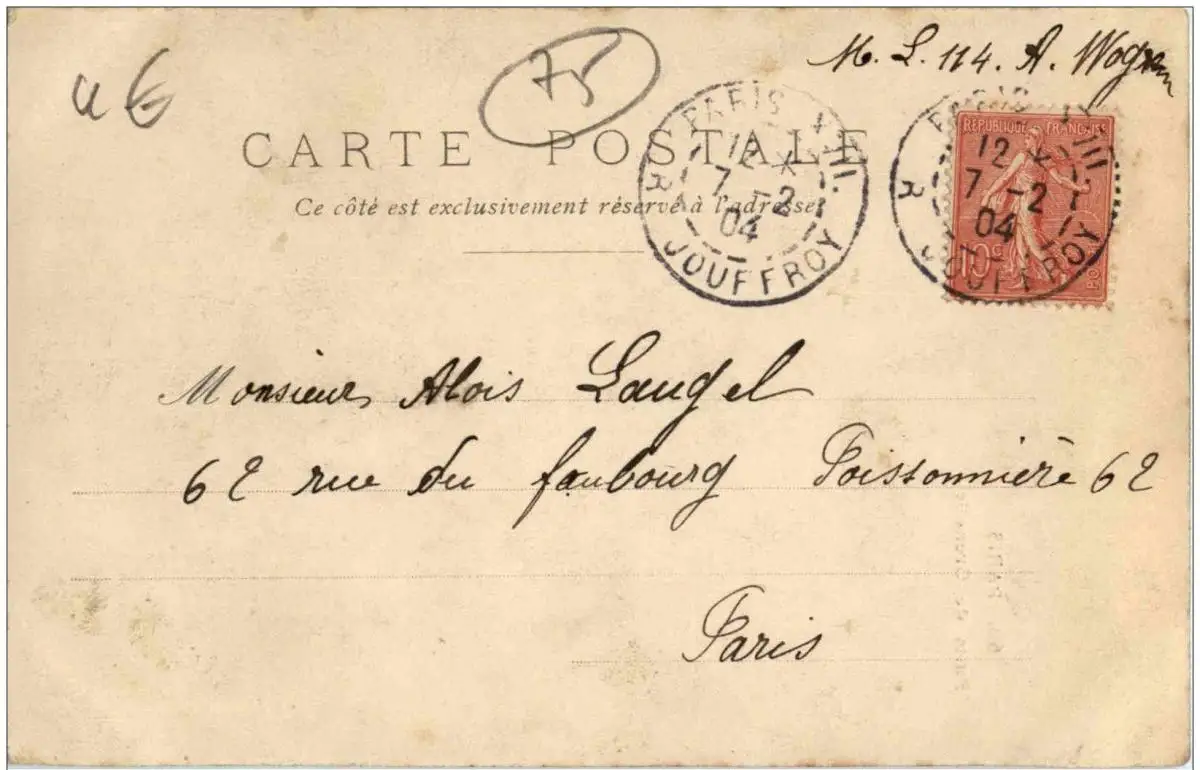 M. L. 114. A.
75
4 €
CARTE POSTALE
Ce côté est exclusivement réservé à l'adresse
PARIS XVIII.
12 *
7 - 2
04
R JOUFFROY
PARIS XVIII.
12 *
7 - 2
04
R JOUFFROY
RÉPUBLIQUE FRANÇAISE
10c
Monsieur Alois Laugel
62 rue du faubourg Poissonnière 62
Paris